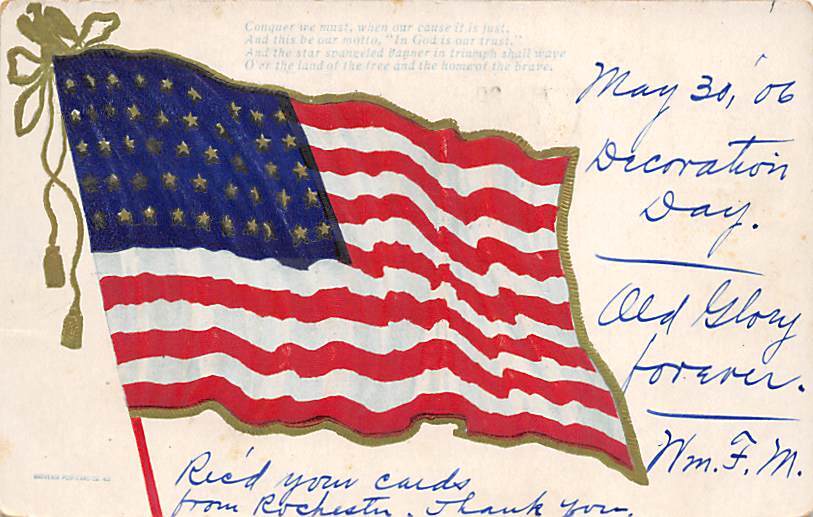 Conquer we must, when our cause it is just,
And this be our motto, "In God is our trust,"
And the star spangeled Banner in triumph shall wave
O'er the land of the free and the home of the brave.
May 30, '06
Decoration
Day.
Old Glory
forever.
Wm. F. M.
Rec'd your cards
from Rochester. Thank you.